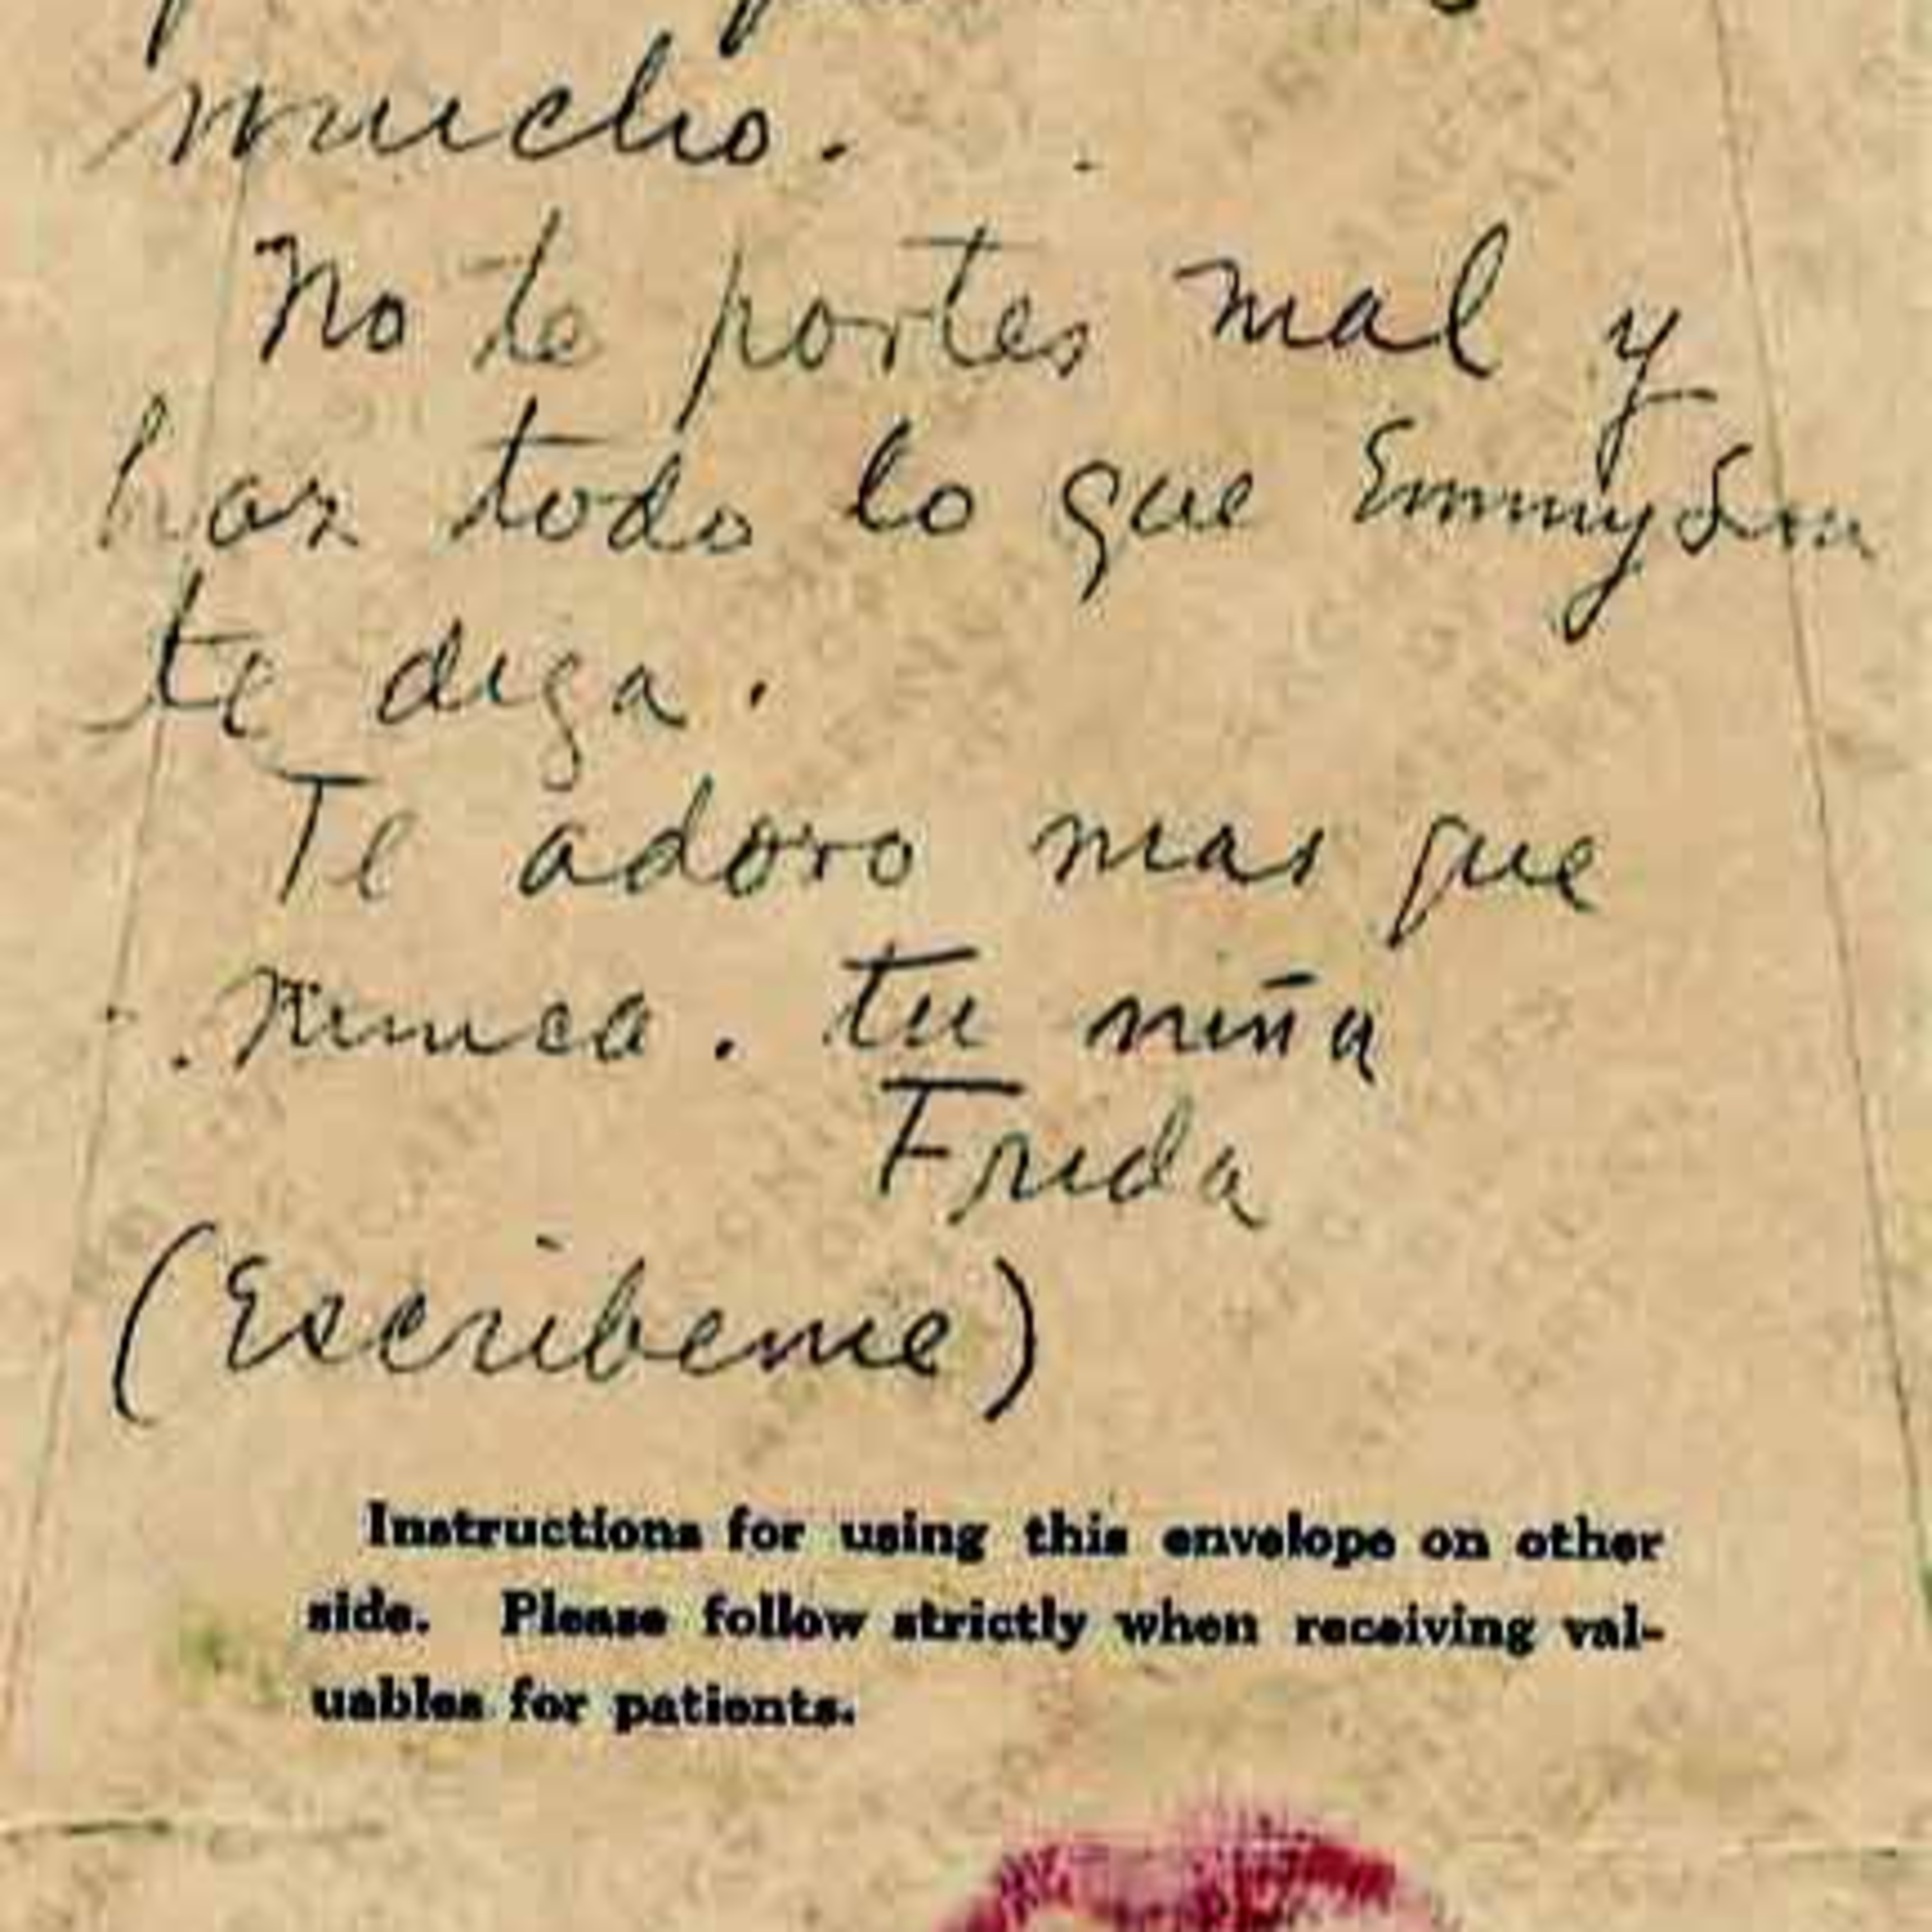 mucho.
No te portes mal y
haz todo lo que Emmy Lou
te diga.
Te adoro mas que
nunca. tu niña
Frida
(Escribeme)
Instructions for using this envelope on other
side. Please follow strictly when receiving val-
uables for patients.